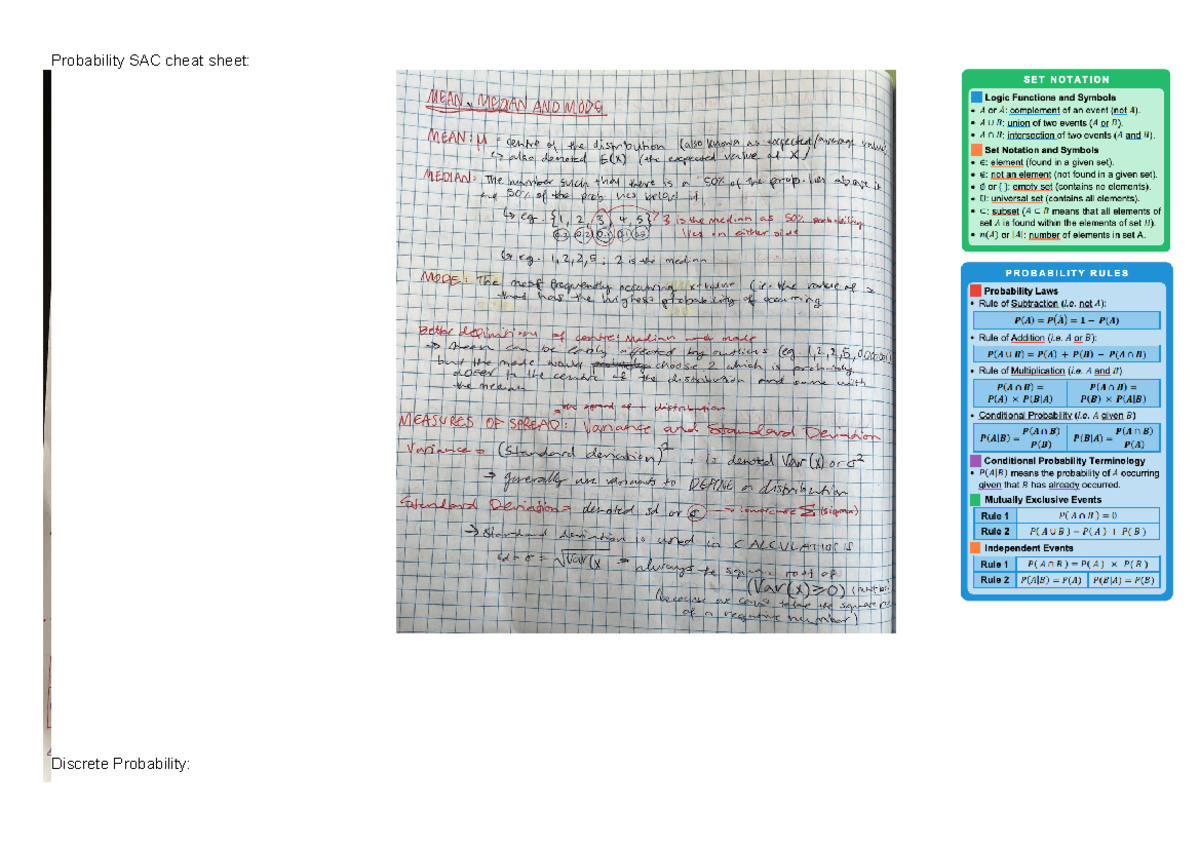 Probability SAC cheat sheet:
MEAN, MEDIAN AND MODE
MEAN: μ = centre of the distribution (also known as expected/average value)
↳ also denoted E(X) (the expected value of X)
MEDIAN: The number such that there is a 50% of the prob. lies above it
and 50% of the prob lies below it
↳ eg. {1, 2, 3, 4, 5} 3 is the median as 50% probability
lies on either side
↳ eg. 1, 2, 2, 5 ; 2 is the median
MODE: The most frequently occurring x-value (i.e. the value of x
that has the highest probability of occurring
Better definitions of centre: median and mode
→ Mean can be easily affected by outliers (eg. 1, 2, 2, 5,
but the mode would choose 2 which is probably
closer to the centre of the distribution and same with
the median
the spread of a distribution
MEASURES OF SPREAD: Variance and Standard Deviation
Variance = (standard deviation)² , is denoted Var(x) or σ²
→ generally use variants to DEFINE a distribution
Standard Deviation = denoted sd or σ → lowercase Σ (sigma)
→ Standard deviation is used in CALCULATIONS
sd = σ = √Var(x → always the square root of
(Var(x) ≥ 0)
(because we can't take the square
of a negative number)
SET NOTATION
Logic Functions and Symbols
• A′ or Ā: complement of an event (not A).
• A ∪ B: union of two events (A or B).
• A ∩ B: intersection of two events (A and B).
Set Notation and Symbols
• ∈: element (found in a given set).
• ∉: not an element (not found in a given set).
• ∅ or { }: empty set (contains no elements).
• U: universal set (contains all elements).
• ⊂: subset (A ⊂ B means that all elements of
set A is found within the elements of set B).
• n(A) or |A|: number of elements in set A.
PROBABILITY RULES
Probability Laws
• Rule of Subtraction (i.e. not A):
P(A′) = P(Ā) = 1 − P(A)
• Rule of Addition (i.e. A or B):
P(A ∪ B) = P(A) + P(B) − P(A ∩ B)
• Rule of Multiplication (i.e. A and B)
P(A ∩ B) = P(A) × P(B|A)
P(A ∩ B) = P(B) × P(A|B)
• Conditional Probability (i.e. A given B)
P(A|B) = P(A ∩ B) / P(B)
P(B|A) = P(A ∩ B) / P(A)
Conditional Probability Terminology
• P(A|B) means the probability of A occurring
given that B has already occurred.
Mutually Exclusive Events
Rule 1 P(A ∩ B) = 0
Rule 2 P(A ∪ B) = P(A) + P(B)
Independent Events
Rule 1 P(A ∩ B) = P(A) × P(B)
Rule 2 P(A|B) = P(A) P(B|A) = P(B)
Discrete Probability: